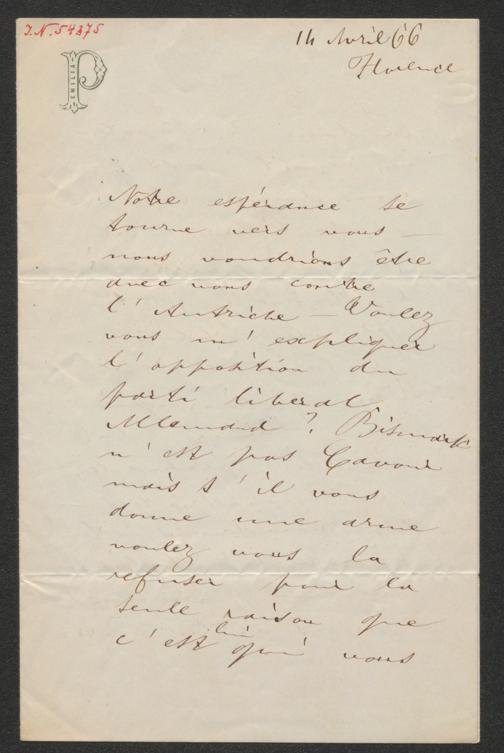 J.N. 54375
P
EMILIA
14 Avril 66
Florence
Notre espérance se
tourne vers vous —
nous voudrions être
avec vous contre
l'Autriche — Voulez
vous m'expliquer
l'opposition du
parti liberal
Allemand ? Bismark
n'est pas Cavour
mais s'il vous
donne une arme
voulez vous la
refuser pour la
seule raison que
c'est lui qui vous